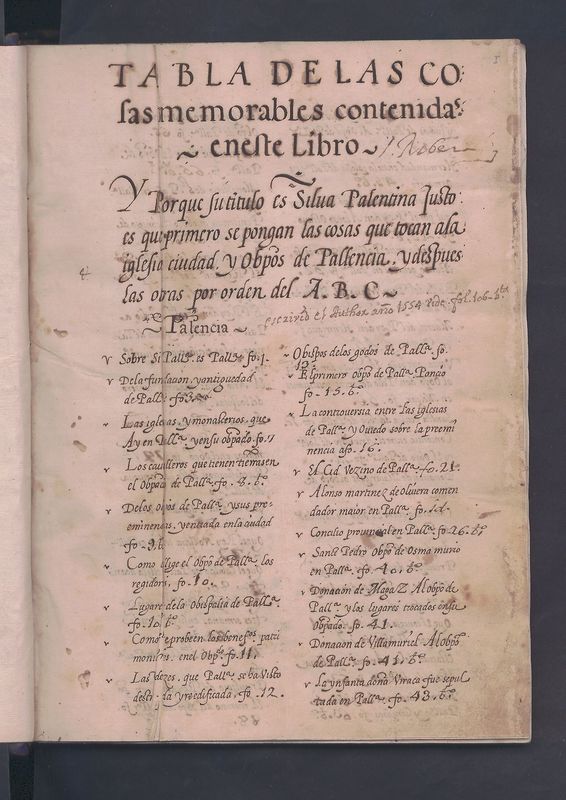 1
TABLA DE LAS CO
sas memorables contenidas
en este Libro
Y Porque su titulo es Silva Palentina Justo
es que primero se pongan las cosas que tocan a la
iglesia ciudad y Obpos de Pallencia, y despues
las otras por orden del A.B.C
escrived el Author año 1554 vide fol. 106 bto
Palencia
Sobre Si Palla es Palla fo. 1.
De la fundacion y antiguedad
de Palla fo 3
Las iglesias y monasterios que
Ay en Palla y en su obpado. fo. 7
Los cavalleros que tienen tierras en
el Obpado de Palla fo. 8. bto
De los obpos de Palla y sus pre-
eminencias y entrada en la ciudad
fo. 9 bto
Como elige el Obpo de Palla los
regidores fo. 10.
Lugares de la Obispalia de Palla
fo. 10 bto
Como se proben los benefos patri
moniales en el Obpo fo. 11.
Las vezes que Palla se ha visto
desto da y reedificada. fo. 12.
Obispos de los godos de Palla fo.
13
El primero obpo de Palla Ponço
fo. 15. bto
La controversia entre las iglesias
de Palla y Oviedo sobre la preemi
nencia a fo. 16.
El Cid Vezino de Palla fo. 21.
Alonso martinez de Olivera comen
dador maior en Palla fo.
Concilio provincial en Palla fo. 26. bto
Sanct Pedro Obpo de Osma murio
en Palla fo. 40. bto
Donacion de Magaz Al obpo de
Palla y los lugares trocados en su
Obpado fo. 41.
Donacion de Villamuriel Al obpo
de Palla fo. 41. bto
La ynfanta doña Vrraca fue sepul
tada en Palla fo. 43. bto